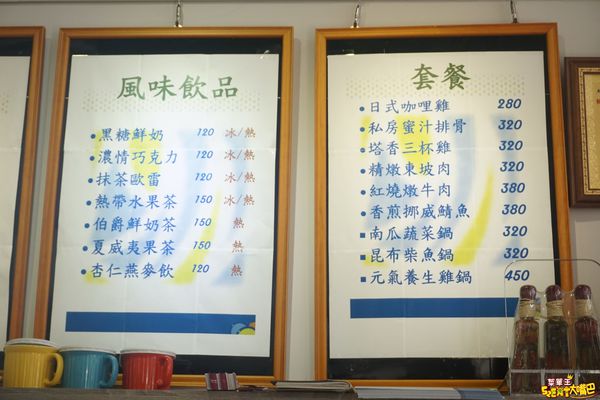 風味飲品
•黑糖鮮奶 120 冰/熱
•濃情巧克力 120 冰/熱
•抹茶歐雷 120 冰/熱
•熱帶水果茶 150 冰/熱
•伯爵鮮奶茶 150 熱
•夏威夷果茶 150 熱
•杏仁燕麥飲 120 熱
套餐
•日式咖哩雞 280
•私房蜜汁排骨 320
•塔香三杯雞 320
•精燉東坡肉 320
•紅燒燉牛肉 380
•香煎挪威鯖魚 380
■南瓜蔬菜鍋 320
■昆布柴魚鍋 320
■元氣養生雞鍋 450
菜單王
大嘴巴